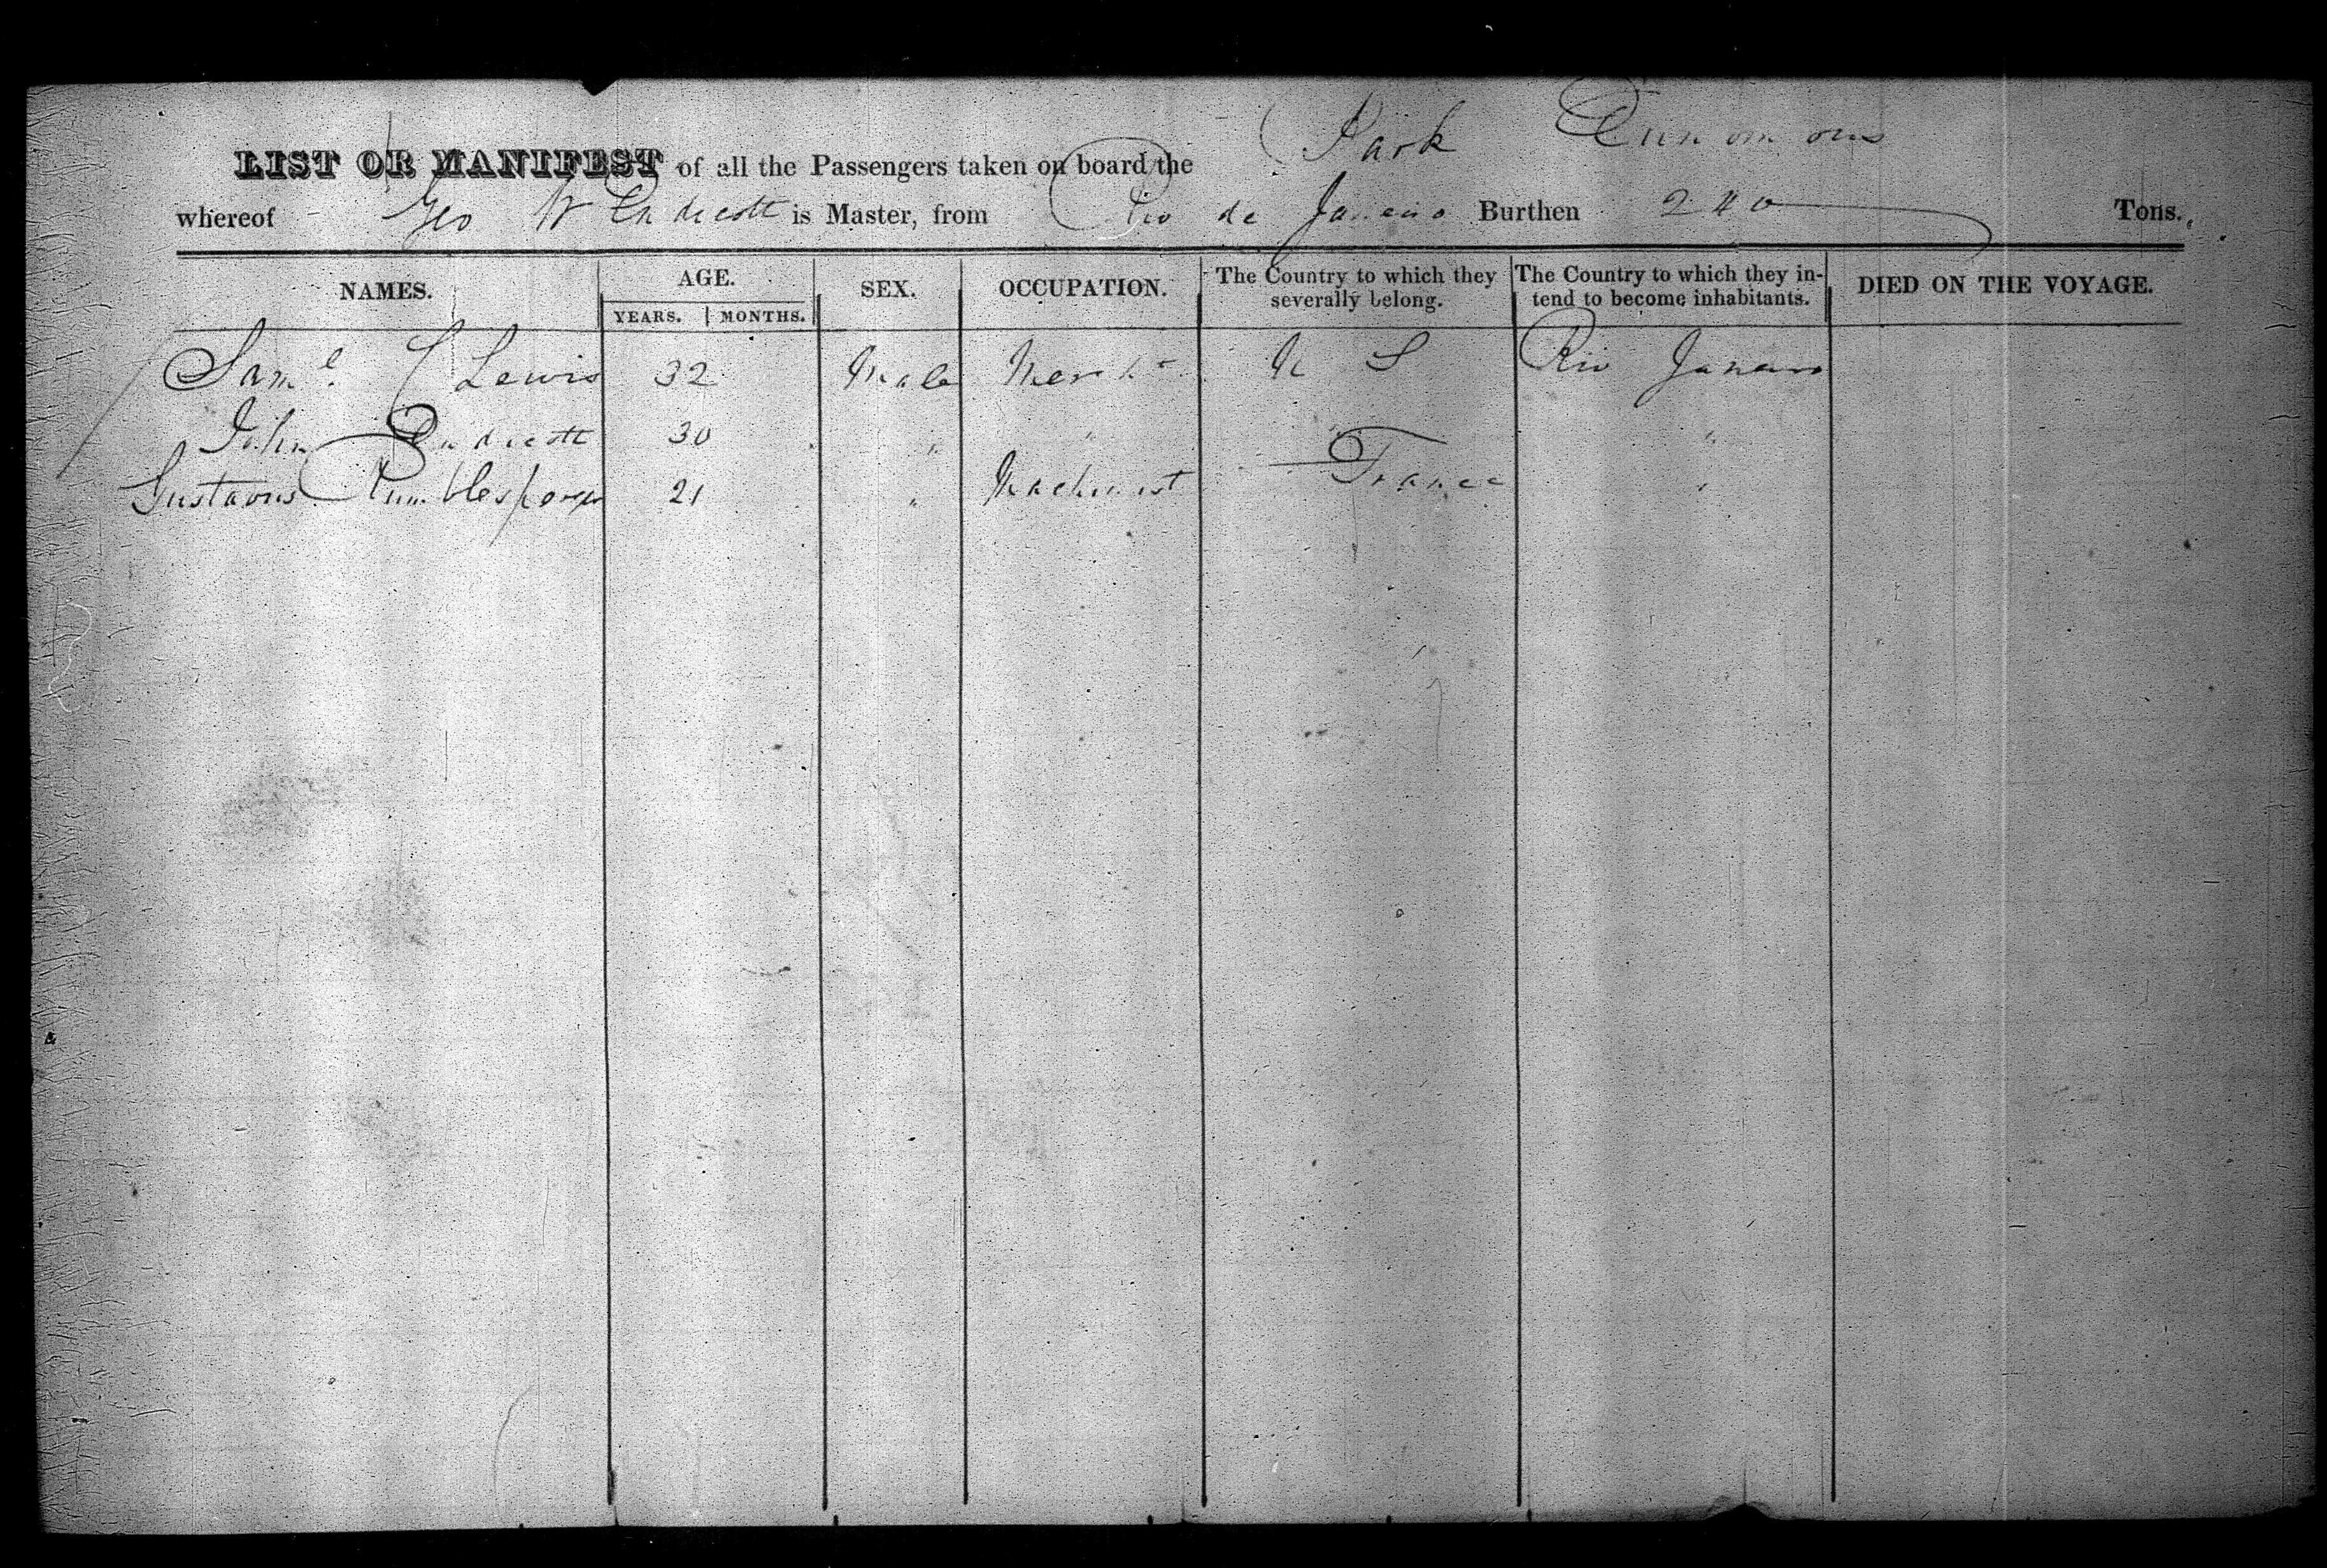 LIST OR MANIFEST of all the Passengers taken on board the Bark
whereof Geo W Endicott is Master, from Rio de Janeiro Burthen 240 Tons.
NAMES. AGE. SEX. OCCUPATION. The Country to which they severally belong. The Country to which they intend to become inhabitants. DIED ON THE VOYAGE.
YEARS. MONTHS.
Saml. C Lewis 32 Male Mercht U S Rio Janeiro
John Endicott 30 " " " "
Gustavus 21 " Machinist France "